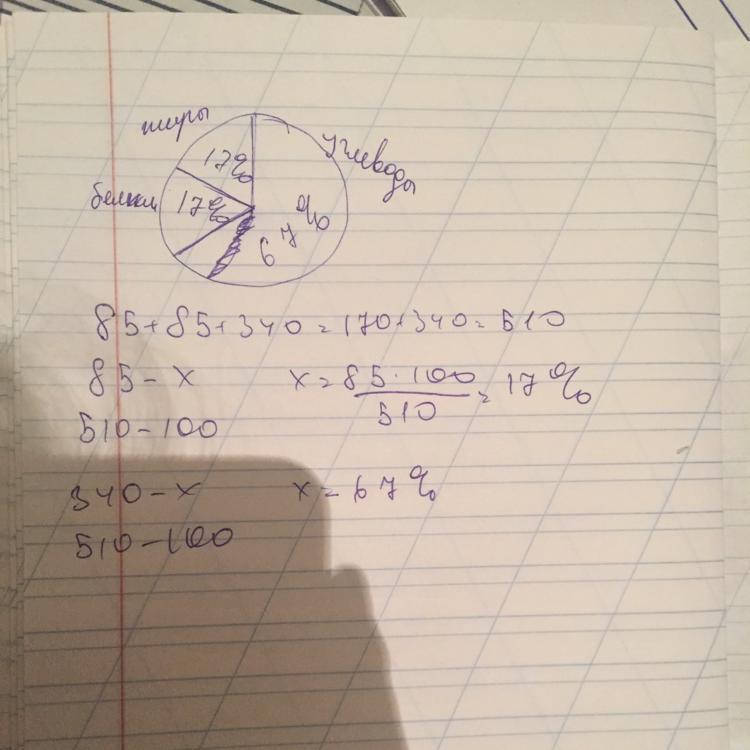 жиры
углеводы
17%
белки
17%
67%
85+85+340=170+340=510
85-x x=85·100/510=17%
510-100
340-x x=67%
510-100